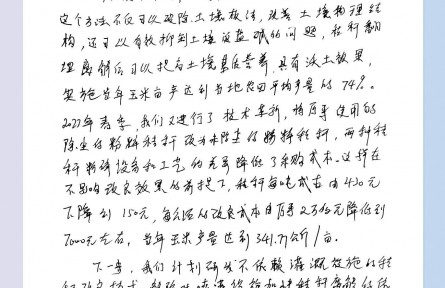 这个方法不仅可以破除土壤板结，改善土壤物理结
构，还可以有效抑制土壤返盐碱的问题，秸秆翻
埋腐解后可以提高土壤基层营养，具有沃土效果，
实施当年玉米亩产达到当地农田平均产量的74%。
2022年春季，我们又进行了技术革新，将原来使用的
除尘的粉碎秸秆改为未除尘的粉碎秸秆，两种秸
秆粉碎设备和工艺的差异降低了采购成本。这样在
不影响改良效果的前提下，秸秆每吨成本由430元
下降到150元，每公顷的改良成本由原来2万余元降低到
7000元左右，当年玉米产量达到341.77公斤/亩。
下一步，我们计划研发不依赖灌溉设施的秸